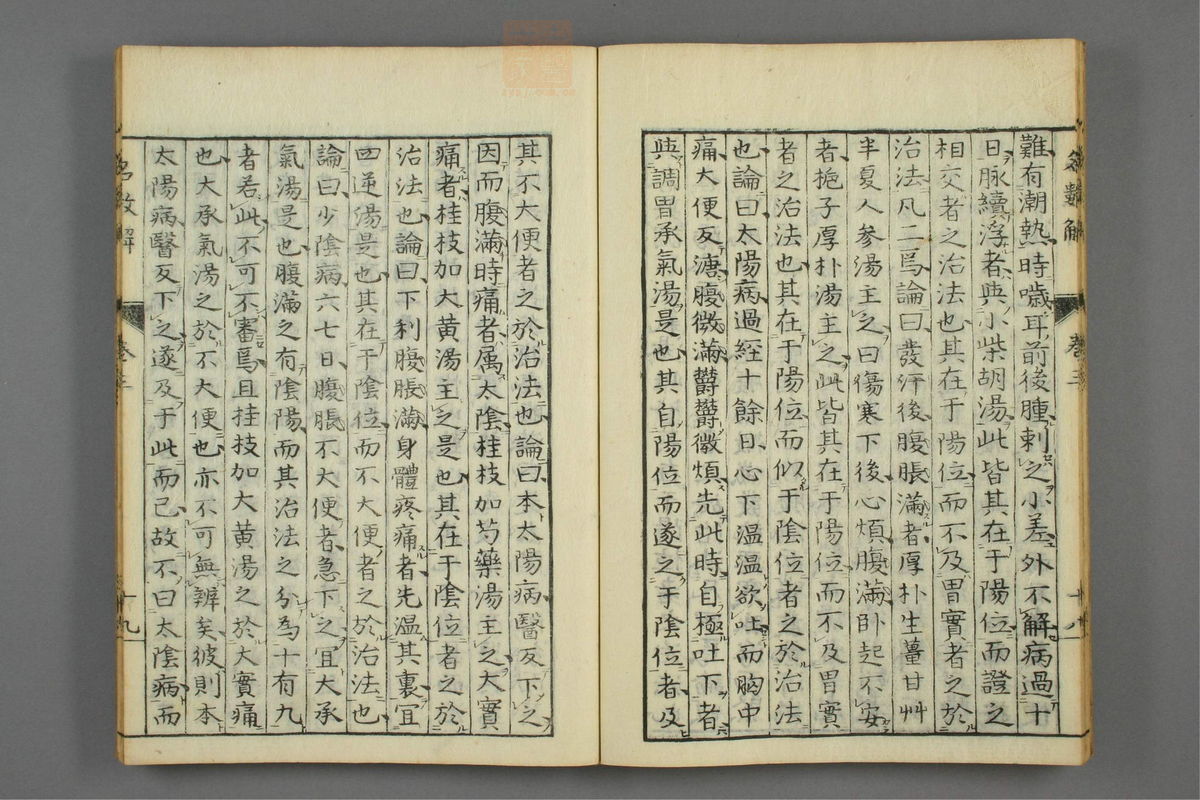 難有潮熱時噦耳前後腫刺之小差外不解病過十
日脉續浮者與小柴胡湯此皆其在于陽位而證之
相交者之治法也其在于陽位而不及胃實者之於
治法凡二焉論曰發汗後腹脹滿者厚朴生薑甘艸
半夏人參湯主之曰傷寒下後心煩腹滿卧起不安
者梔子厚朴湯主之此皆其在于陽位而不及胃實
者之治法也其在于陽位而似于陰位者之於治法
也論曰太陽病過經十餘日心下温温欲吐而胸中
痛大便反溏腹微滿欝欝微煩先此時自極吐下者
與調胃承氣湯是也其自陽位而遂之于陰位者及
其不大便者之於治法也論曰本太陽病醫反下之
因而腹滿時痛者属太陰桂枝加芍藥湯主之大實
痛者桂枝加大黄湯主之是也其在于陰位者之於
治法也論曰下利腹脹滿身體疼痛者先温其裏宜
四逆湯是也其在于陰位而不大便者之於治法也
論曰少陰病六七日腹脹不大便者急下之宜大承
氣湯是也腹滿之有陰陽而其治法之分為十有九
者若此不可不審焉且桂枝加大黄湯之於大實痛
也大承氣湯之於不大便也亦不可無辨矣彼則本
太陽病醫反下之遂及于此而已故不曰太陰病而
卷三
十九